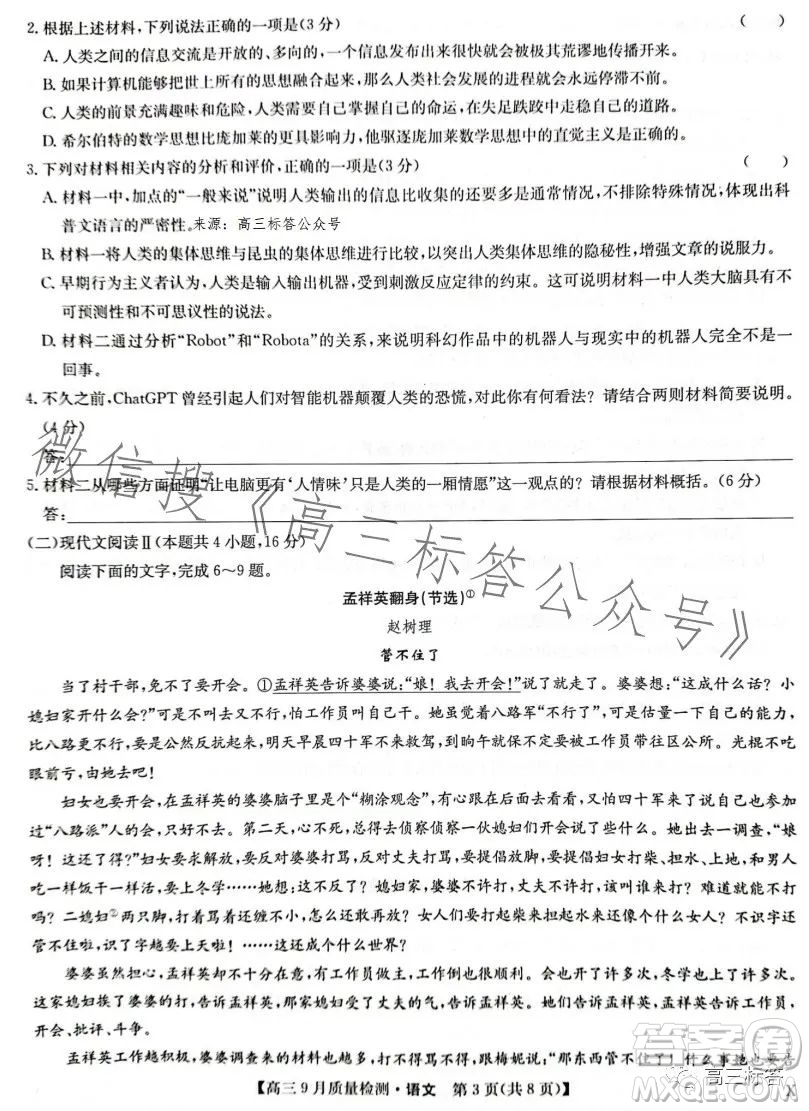 2. 根据上述材料,下列说法正确的一项是(3 分) ( )
A. 人类之间的信息交流是开放的、多向的,一个信息发布出来很快就会被极其荒谬地传播开来。
B. 如果计算机能够把世上所有的思想融合起来,那么人类社会的发展进程就会永远停滞不前。
C. 人类的前景充满趣味和危险,人类只有自己掌握自己的命运,在失足跌跤中走自己的道路。
D. 希尔伯特的数学思想比庞加莱的更具影响力,他驱逐庞加莱的数学中的直觉主义是正确的。
3. 下列对材料相关内容的分析和评价,正确的一项是(3 分) ( )
A. 材料一中,加点的“一般来说”说明人类输出的信息比收集的还要多,不排除特殊情况,体现出科
普文语言的严密性。来源:高三标答公众号
B. 材料一将人类的集体思维与昆虫的集体思维进行比较,以突出人类集体思维的隐秘性,增强文章的说服力。
C. 早期行为主义者认为,人类是输入输出机器,受到刺激反应定律的约束。这说明材料一中人类大脑具有不
可预测性和不可思议性的说法。
D. 材料二通过分析“Robot”和“Robota”的关系,来说明科幻作品中的机器人与现实中的机器人完全不是一
回事。
4. 不久之前,ChatGPT 曾经引起人们对智能机器颠覆人类的恐慌,对此你有何看法?请结合两则材料简要说明。
(4 分)
答:
5. 材料二从哪些方面证明“让电脑更有‘人情味’只是人类的一厢情愿”这一观点的?请根据材料概括。(6 分)
答:
(二)现代文阅读Ⅱ(本题共 4 小题,16 分)
阅读下面的文字,完成 6~9 题。
孟祥英翻身(节选)①
赵树理
管不住了
当了村干部,免不了要开会。①孟祥英告诉婆婆说:“娘!我去开会!”说了就走了。婆婆想:“这成什么话?小
媳妇家开什么会?”可是不叫去又不行,怕工作员叫自己干。她虽觉着八路军“不行了”,可是估量一下自己的能力,
比八路更不行,要是恶狠狠地打起来,明天早晨四十军不来救驾,到晌午就保不定要被工作员带往区公所。光棍不吃
眼前亏,由她去吧!
妇女也要开会,在孟祥英的婆婆脑子里是个“糊涂观念”,有心跟在后面去看看,又怕四十军来了说自己参加
过“八路派”人的会,只好不去。第二天,心不死,总得去侦察侦察一伙媳妇们开会说了些什么。她出去一调查,“娘
呀!这还了得?”妇女要求解放,要反对婆婆打骂,反对丈夫打骂,要提倡放脚,要提倡妇女打柴、担水、上地,和男人
吃一样饭干一样活,要上冬学……她想:这不反了?媳妇家,婆婆不许打,丈夫不许打,该叫谁来打?难道就能不打
吗?二媳妇②两只脚,打着骂着还缠不小,怎么还敢再放?女人们要打起柴来担起水来还像个什么女人?不识字还
管不住啦,识了字越要上天啦!……这还成个什么世界?
婆婆虽然担心,孟祥英却不十分在意,有工作员做主,工作倒也很顺利,会也开了许多次,冬学也上了许多次。
这家媳妇挨了婆婆的打,告诉孟祥英,那家媳妇受了丈夫的气,告诉孟祥英。她们告诉孟祥英,孟祥英告诉工作员,
开会、批评、斗争。
孟祥英工作越积极,婆婆调查来的材料也越多,打不得骂不得,跟梅妮说:“那东西管不住了!什么事她也要告
【高三 9 月质量检测·语文 第 3 页(共 8 页)】
微信搜《高三标答公众号》
答案圈
MXQE.COM
高三标答